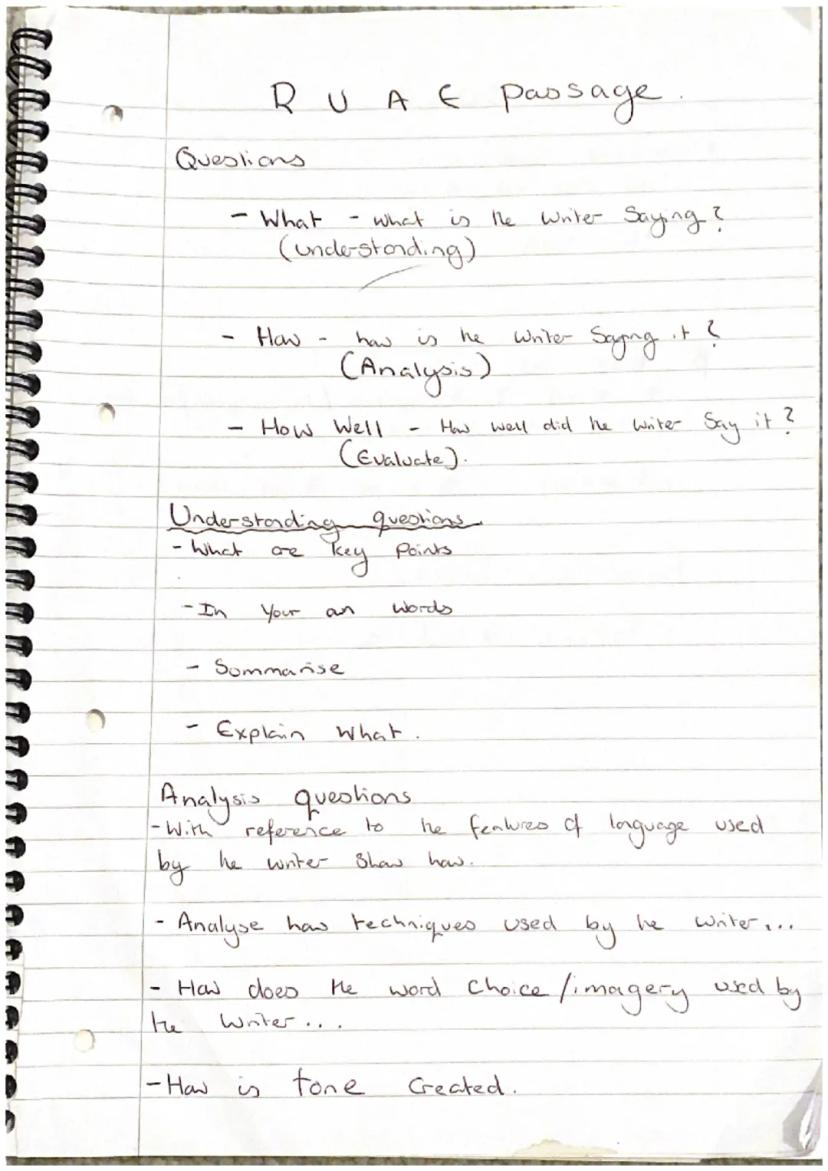 R U A E passage.
Questions
- What - what is the writer saying?
(understanding)
- How - how is the writer saying it?
(Analysis)
- How Well - How well did the writer say it?
(Evaluate).
Understanding questions
- What are key points
- In your own words
- Summarise
- Explain what.
Analysis questions
- With reference to the features of language used
by the writer show how.
- Analyse how techniques used by the writer...
- How does the word choice/imagery used by
the writer...
- How is tone created.